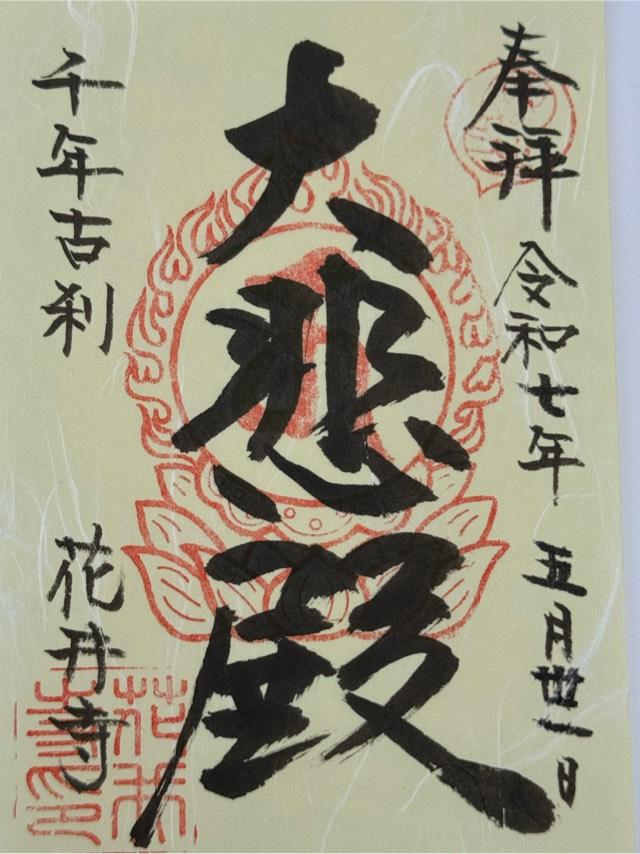 奉拝 令和七年 五月丗一日
大悲殿
千年古刹 花井寺